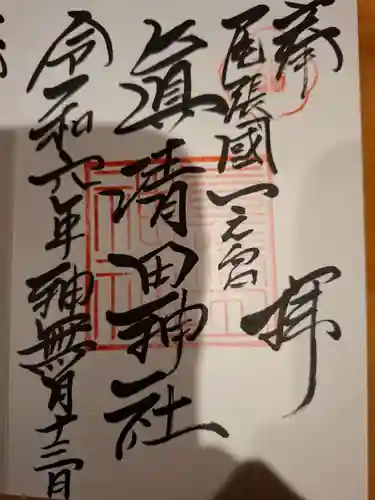 奉拝
尾張國一之宮
真清田神社
令和六年神無月十三日